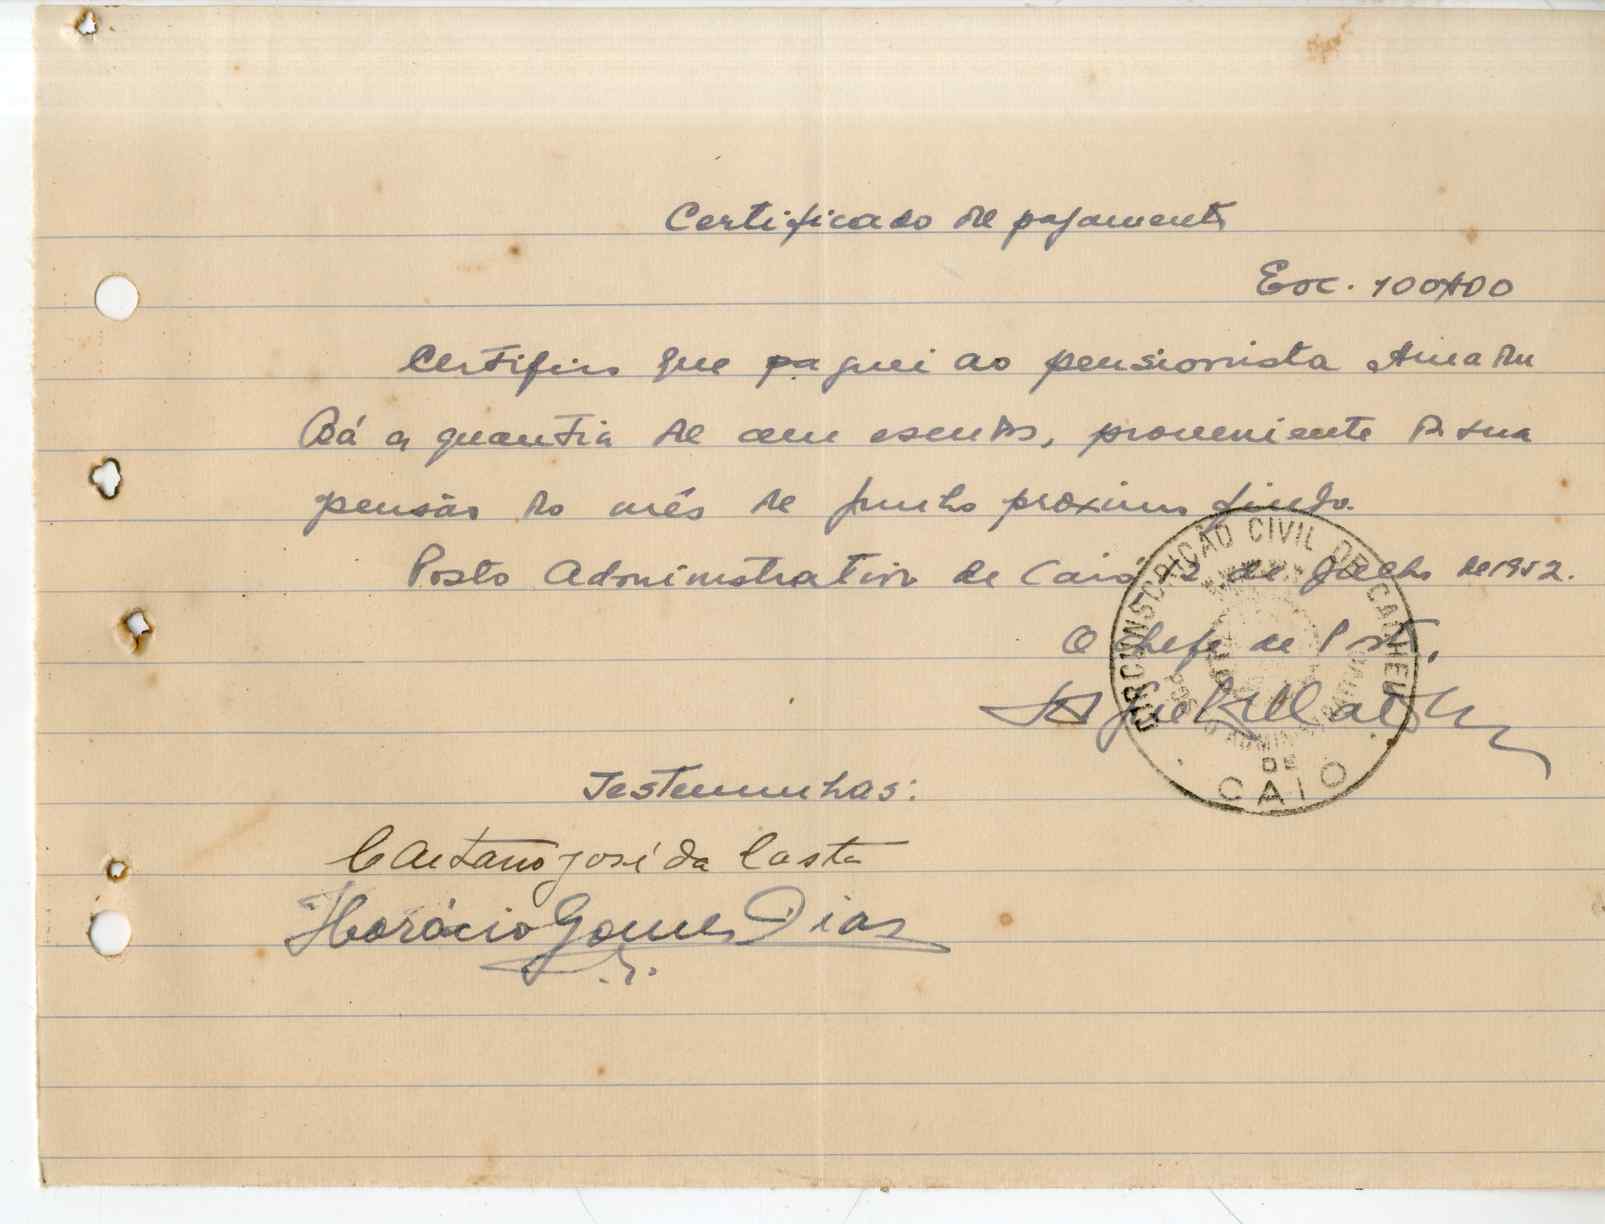 Certificado de pagamento
Esc. 100$00
Certifico que paguei ao pensionista Amadu
Bá a quantia de cem escudos, proveniente da sua
pensão do mês de Junho proximo findo.
Posto Administrativo de Caió, 2 de Julho de 1952.
O chefe de Posto,
Testemunhas:
Caetano José da Costa
Horácio Gomes Dias
CIRCUNSCRIÇÃO CIVIL DE CANHEU
POSTO ADMINISTRATIVO
DE
CAIO